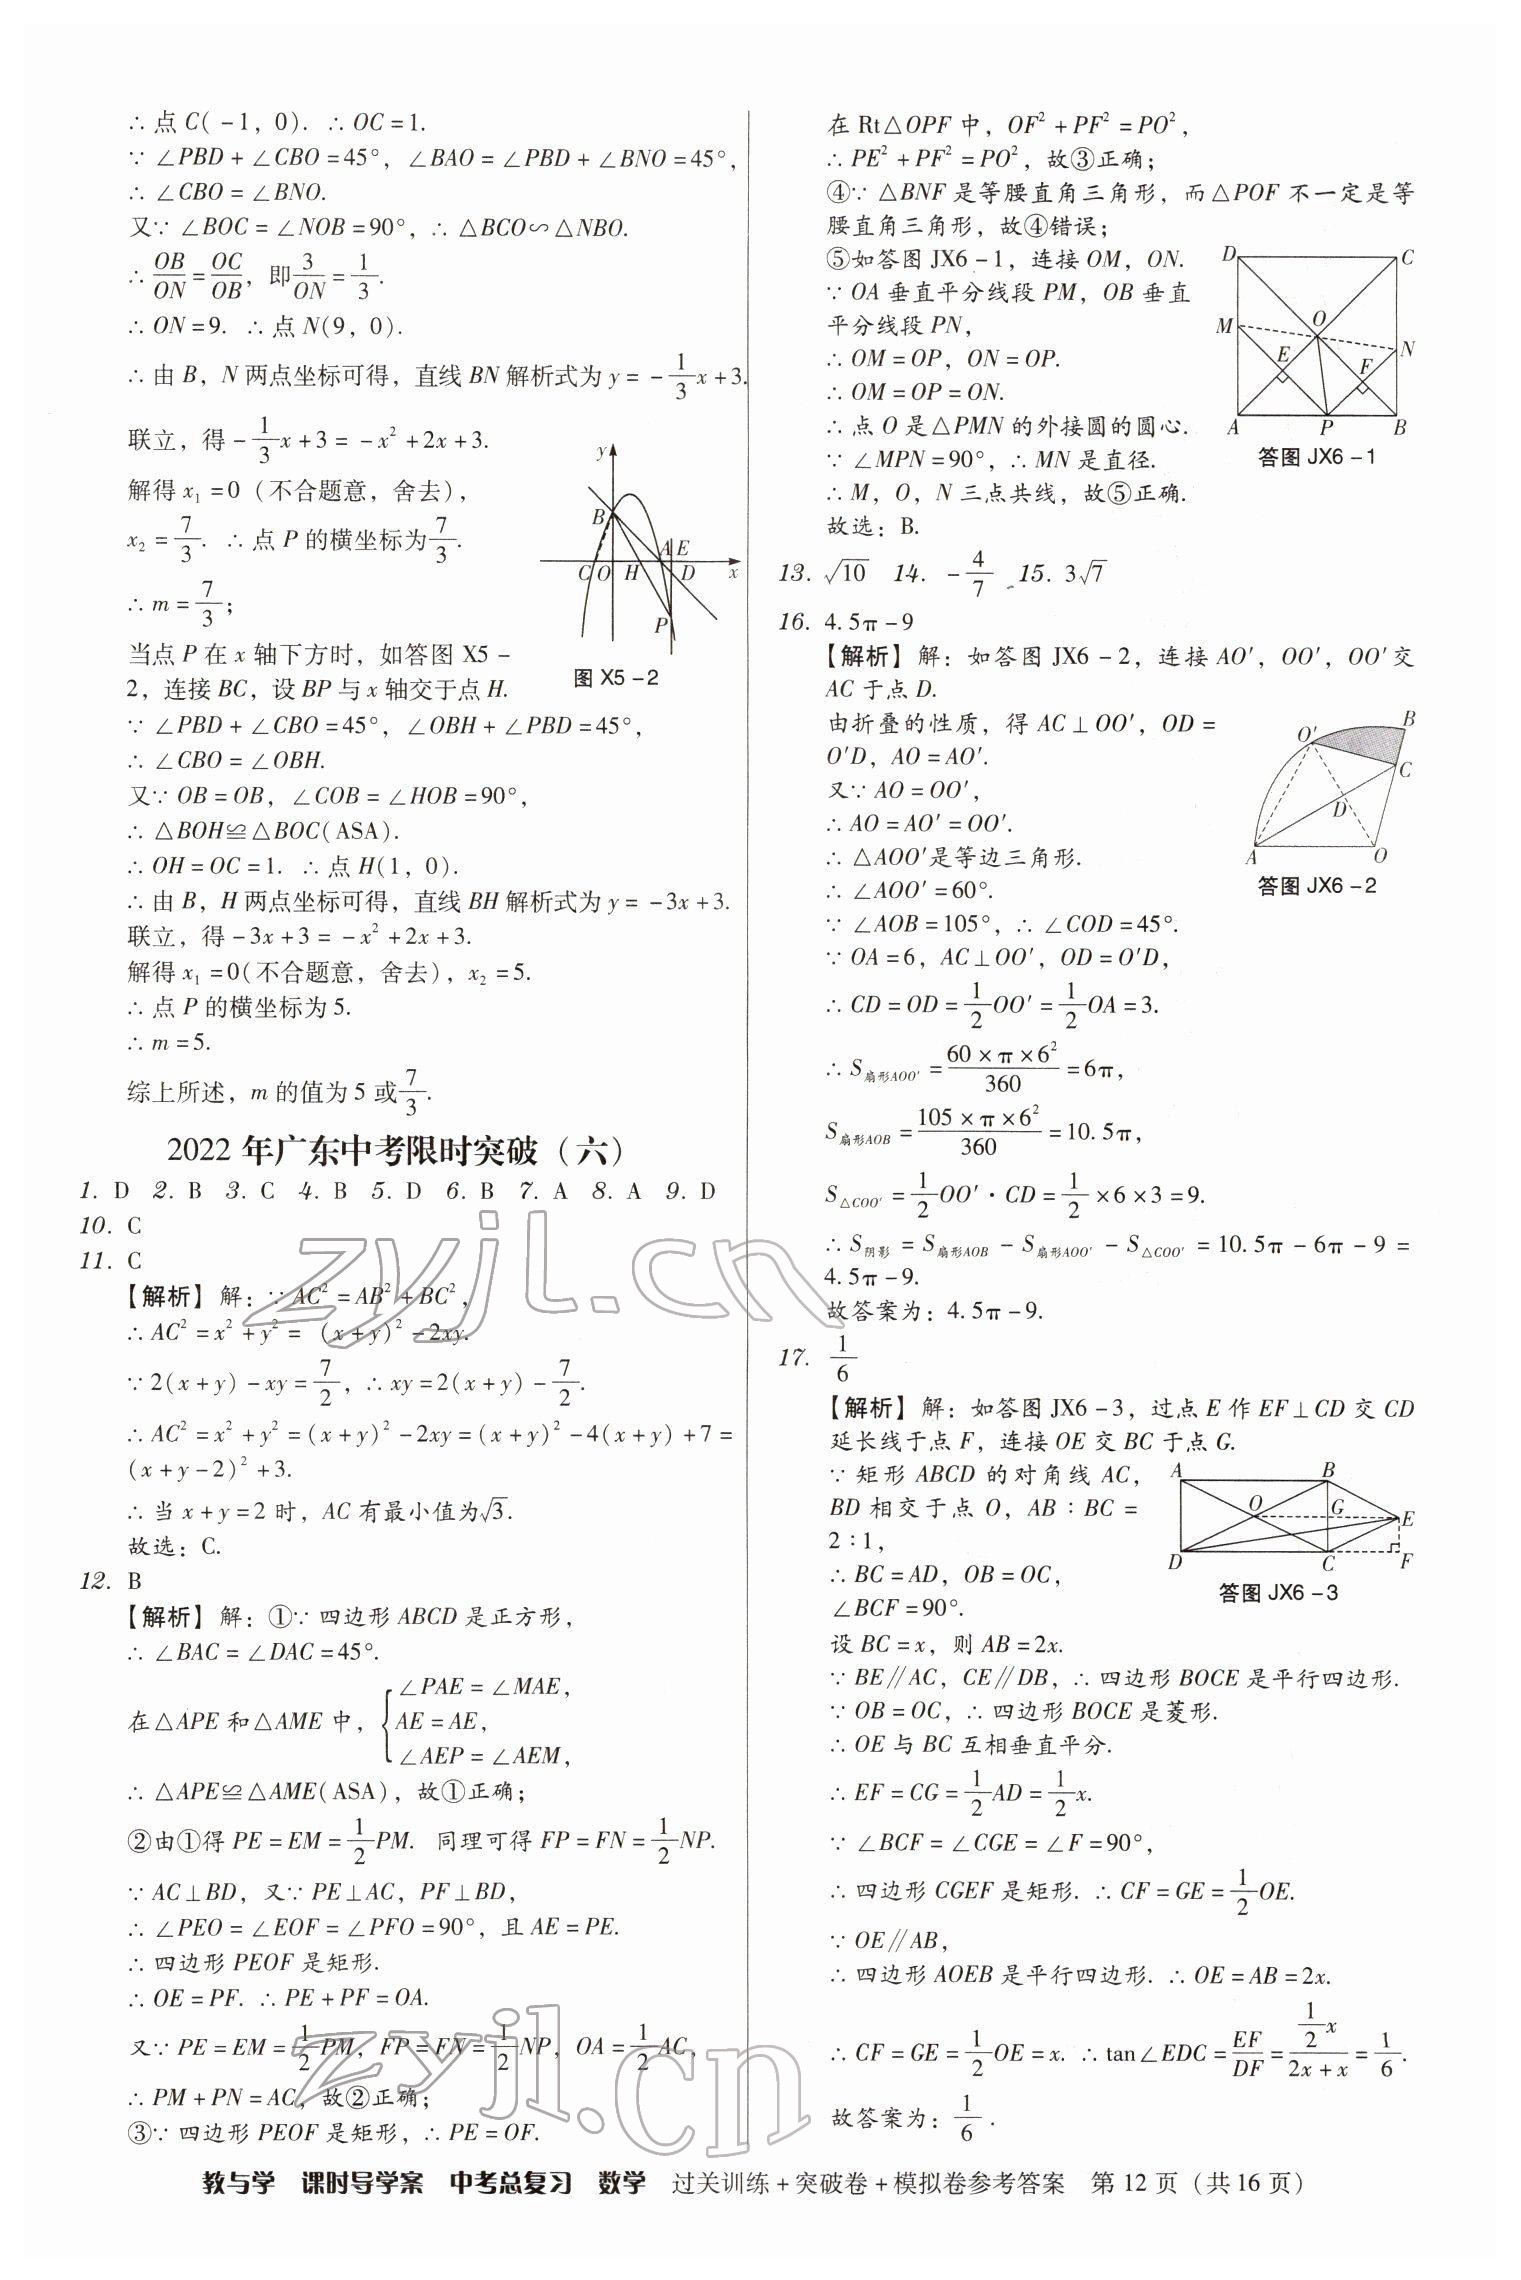 ∴ 点 C(-1, 0). ∴ OC=1.
∵ ∠PBD+∠CBO=45°, ∠BAO=∠PBD+∠BNO=45°,
∴ ∠CBO=∠BNO.
又∵ ∠BOC=∠NOB=90°, ∴ △BCO∽△NBO.
∴ OB/ON=OC/OB, 即3/ON=1/3.
∴ ON=9. ∴ 点 N(9, 0).
∴ 由 B, N 两点坐标可得, 直线 BN 解析式为 y=-1/3x+3.
联立, 得-1/3x+3=-x²+2x+3.
解得 x₁=0 (不合题意, 舍去),
x₂=7/3. ∴ 点 P 的横坐标为7/3.
∴ m=7/3;
当点 P 在 x 轴下方时, 如答图 X5-
2, 连接 BC, 设 BP 与 x 轴交于点 H.
y
B
A E
C O H D x
P
图 X5-2
∵ ∠PBD+∠CBO=45°, ∠OBH+∠PBD=45°,
∴ ∠CBO=∠OBH.
又∵ OB=OB, ∠COB=∠HOB=90°,
∴ △BOH≌△BOC(ASA).
∴ OH=OC=1. ∴ 点 H(1, 0).
∴ 由 B, H 两点坐标可得, 直线 BH 解析式为 y=-3x+3.
联立, 得-3x+3=-x²+2x+3.
解得 x₁=0(不合题意, 舍去), x₂=5.
∴ 点 P 的横坐标为 5.
∴ m=5.
综上所述, m 的值为 5 或7/3.
2022 年广东中考限时突破(六)
1. D 2. B 3. C 4. B 5. D 6. B 7. A 8. A 9. D
10. C
11. C
【解析】解: ∵ AC²=AB²+BC²,
∴ AC²=x²+y²=(x+y)²-2xy.
∵ 2(x+y)-xy=7/2, ∴ xy=2(x+y)-7/2.
∴ AC²=x²+y²=(x+y)²-2xy=(x+y)²-4(x+y)+7=
(x+y-2)²+3.
∴ 当 x+y=2 时, AC 有最小值为√3.
故选: C.
12. B
【解析】解: ①∵ 四边形 ABCD 是正方形,
∴ ∠BAC=∠DAC=45°.
在△APE 和△AME 中, {∠PAE=∠MAE,
AE=AE,
∠AEP=∠AEM,
∴ △APE≌△AME(ASA), 故①正确;
②由①得 PE=EM=1/2PM. 同理可得 FP=FN=1/2NP.
∵ AC⊥BD, 又∵ PE⊥AC, PF⊥BD,
∴ ∠PEO=∠EOF=∠PFO=90°, 且 AE=PE.
∴ 四边形 PEOF 是矩形.
∴ OE=PF. ∴ PE+PF=OA.
又∵ PE=EM=1/2PM, FP=FN=1/2NP, OA=1/2AC,
∴ PM+PN=AC, 故②正确;
③∵ 四边形 PEOF 是矩形, ∴ PE=OF.
在 Rt△OPF 中, OF²+PF²=PO²,
∴ PE²+PF²=PO², 故③正确;
④∵ △BNF 是等腰直角三角形, 而△POF 不一定是等
腰直角三角形, 故④错误;
⑤如答图 JX6-1, 连接 OM, ON.
∵ OA 垂直平分线段 PM, OB 垂直
平分线段 PN,
∴ OM=OP, ON=OP.
∴ OM=OP=ON.
∴ 点 O 是△PMN 的外接圆的圆心.
∵ ∠MPN=90°, ∴ MN 是直径.
∴ M, O, N 三点共线, 故⑤正确.
故选: B.
D C
M O
E F N
A P B
答图 JX6-1
13. √10 14. -4/7 15. 3√7
16. 4.5π-9
【解析】解: 如答图 JX6-2, 连接 AO′, OO′, OO′交
AC 于点 D.
由折叠的性质, 得 AC⊥OO′, OD=
O′D, AO=AO′.
又∵ AO=OO′,
∴ AO=AO′=OO′.
∴ △AOO′是等边三角形.
∴ ∠AOO′=60°.
∵ ∠AOB=105°, ∴ ∠COD=45°.
O′ B
C
D
A O
答图 JX6-2
∵ OA=6, AC⊥OO′, OD=O′D,
∴ CD=OD=1/2OO′=1/2OA=3.
∴ S扇形AOO′=60×π×6²/360=6π,
S扇形AOB=105×π×6²/360=10.5π,
S△COO′=1/2OO′·CD=1/2×6×3=9.
∴ S阴影=S扇形AOB-S扇形AOO′-S△COO′=10.5π-6π-9=
4.5π-9.
故答案为: 4.5π-9.
17. 1/6
【解析】解: 如答图 JX6-3, 过点 E 作 EF⊥CD 交 CD
延长线于点 F, 连接 OE 交 BC 于点 G.
∵ 矩形 ABCD 的对角线 AC,
BD 相交于点 O, AB∶BC=
2∶1,
∴ BC=AD, OB=OC,
∠BCF=90°.
A B
O G E
D C F
答图 JX6-3
设 BC=x, 则 AB=2x.
∵ BE∥AC, CE∥DB, ∴ 四边形 BOCE 是平行四边形.
∵ OB=OC, ∴ 四边形 BOCE 是菱形.
∴ OE 与 BC 互相垂直平分.
∴ EF=CG=1/2AD=1/2x.
∵ ∠BCF=∠CGE=∠F=90°,
∴ 四边形 CGEF 是矩形. ∴ CF=GE=1/2OE.
∵ OE∥AB,
∴ 四边形 AOEB 是平行四边形. ∴ OE=AB=2x.
∴ CF=GE=1/2OE=x. ∴ tan∠EDC=EF/DF=(1/2x)/(2x+x)=1/6.
故答案为: 1/6.
zyjl.cn
zyjl.cn
教与学 课时导学案 中考总复习 数学 过关训练+突破卷+模拟卷参考答案 第 12 页(共 16 页)